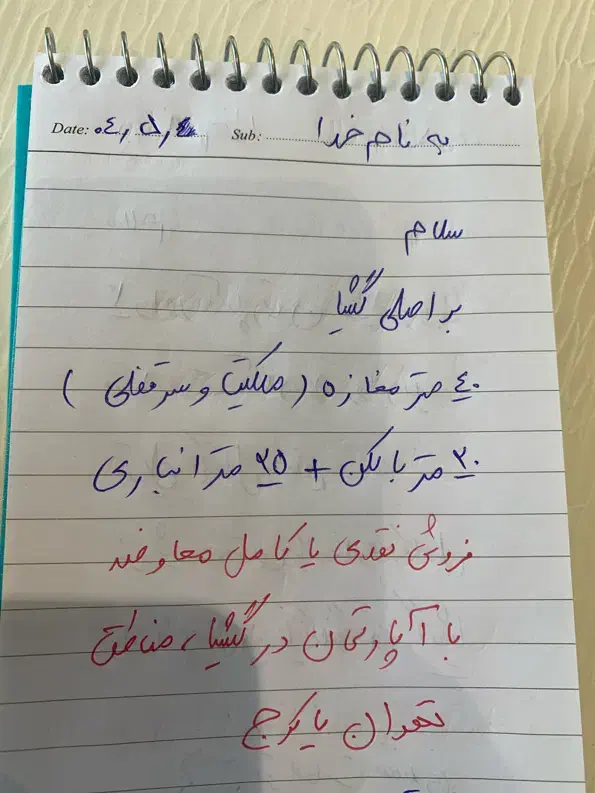 Date: ٠٤, ٥, Sub: به نام خدا
سلام
بر اصلی گیشا
٤٠ متر مغازه (ملکیت و سرقفلی)
٢٠ متر بالکن + ٢٥ متر انباری
فروش نقدی یا کامل معاوضه
با آپارتمان در گیشا، مناطق
تهران یا کرج